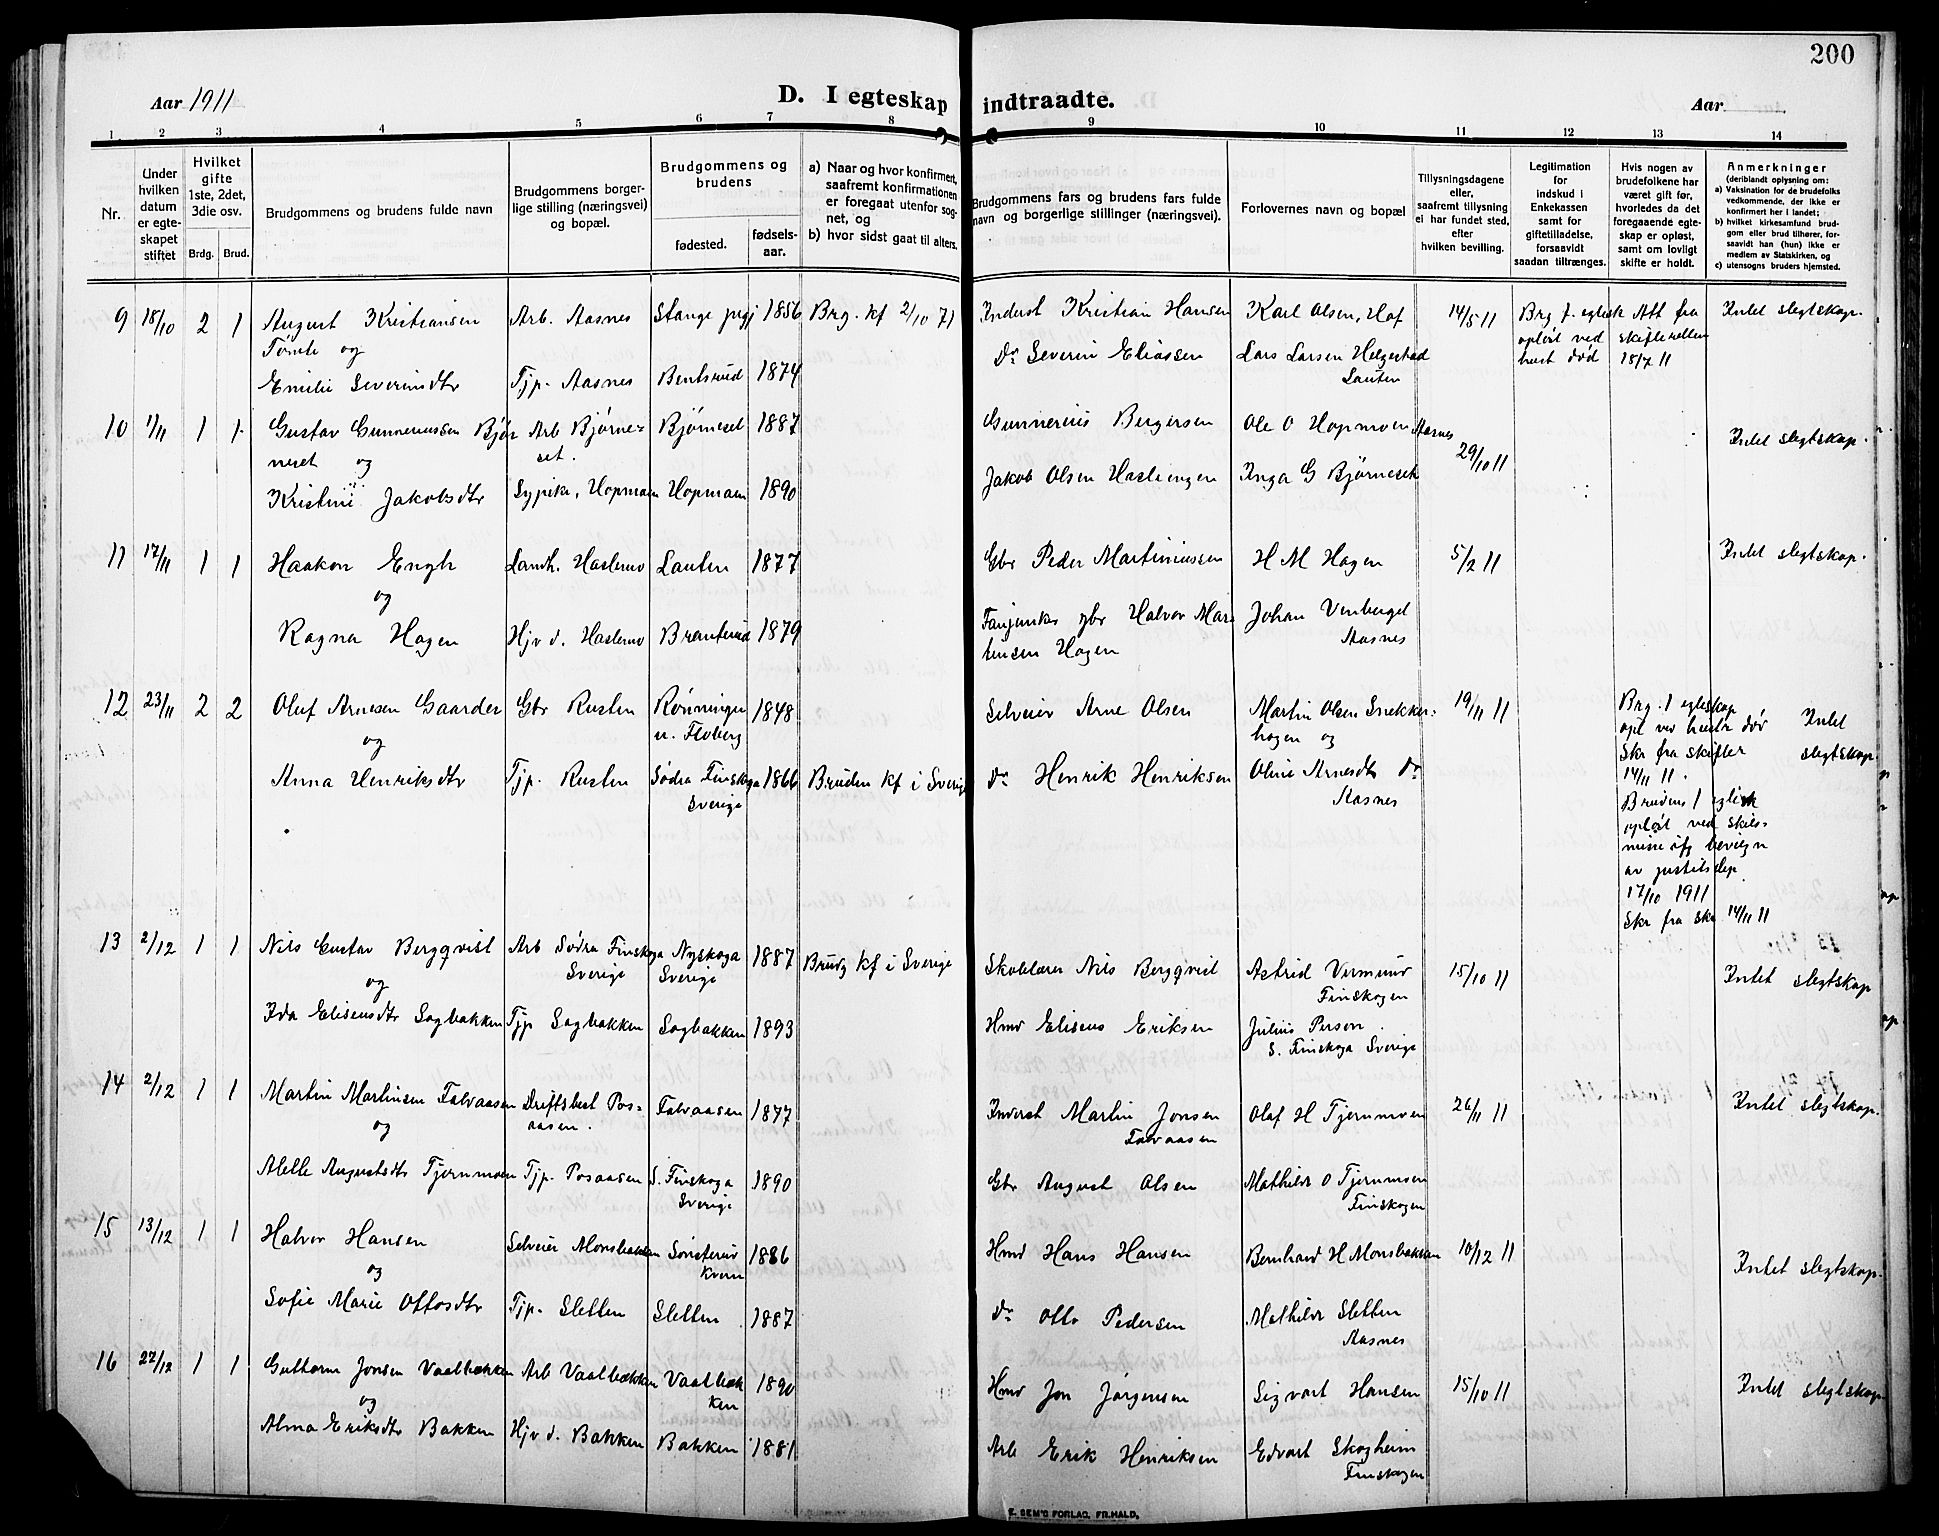 200
Aar 1911
D. I egteskap indtraadte.
Aar
1 2 3 4 5 6 7 8 9 10 11 12 13 14
Nr.
Under hvilken datum er egteskapet stiftet
Hvilket gifte 1ste, 2det, 3die osv.
Brdg. Brud.
Brudgommens og brudens fulde navn
Brudgommens borgerlige stilling (næringsvei) og bopæl.
Brudgommens og brudens
fødested.
fødselsaar.
a) Naar og hvor konfirmert, saafremt konfirmationen er foregaat utenfor sognet, og
b) hvor sidst gaat til alters.
Brudgommens fars og brudens fars fulde navn og borgerlige stillinger (næringsvei).
Forlovernes navn og bopæl
Tillysningsdagene eller, saafremt tillysning ei har fundet sted, efter hvilken bevilling.
Legitimation for indskud i Enkekassen samt for giftetilladelse, forsaavidt saadan tiltrænges.
Hvis nogen av brudefolkene har været gift før, hvorledes da det foregaaende egteskap er opløst, samt om lovligt skifte er holdt.
Anmerkninger
(deriblandt oplysning om:
a) Vaksination for de brudefolks vedkommende, der ikke er konfirmert her i landet;
b) hvilket kirkesamfund brudgom eller brud tilhører, forsaavidt han (hun) ikke er medlem av Statskirken, og
c) utensogns bruders hjemsted.
9 18/10 2 1 August Kristiansen Arb. Aasnes Stange prgj 1856 Brg. kf 2/10 71 Inderst Kristian Hansen Karl Olsen, Hof 14/5 11 Brg f. egtesk Att fra Intet slegtskap.
Tønte og Do Severin Eliassen Lars Larsen Helgestad opløst ved skifteretten
Emilie Severinsdtr Tjp. Aasnes Bentsrud 1874 Løuten hust død 18/7 11
10 1/11 1 1 Gustav Gunneriussen Bjør Arb Bjørne- Bjørneset 1887 Gunnerius Bergersen Ole O Hopmoen Aasnes 29/10 11 Intet slegtskap.
neset og set.
Kristine Jakobsdtr Sypike, Hopmoen Hopmoen 1890 Jakob Olsen Haslingen Inga G Bjørneset
11 17/11 1 1 Haakon Engh Landh. Haslemo Løuten 1877 Gbr Peder Martiniussen H M Hagen 5/2 11 Intet slegtskap.
og
Ragna Hagen Hjv d. Haslemo Branterud 1879 Fanjunker gbr Halvor Mar Johan Venberget
tinsen Hagen Aasnes
12 23/11 2 2 Oluf Arnesen Gaarder Gbr Rusten Rønningen 1848 Selveier Arne Olsen Martin Olsen Snekker- 19/11 11 Brg. 1 egteskap Intet
og u. Floberg hagen og opl ved hustr død slegtskap
Anna Henriksdtr Tjp. Rusten Södra Finskoga 1866 Bruden kf i Sverige do Henrik Henriksen Oline Arnesdtr do Skr fra skifter
Sverige Aasnes 14/11 11.
Brudens 1 egtesk
opløst ved skils-
misse
av justitsdep
17/10 1911
Skr fra sk. 14/11 11
13 2/12 1 1 Nils Gustav Bergqvist Arb Södra Finskoga Nyskoga 1887 Brudg kf i Sverige Skolelærer Nils Bergqvist Astrid Vermund 15/10 11 Intet slegtskap
og Sverige Sverige Finskogen
Ida Elisensdtr Sagbakken Tjp Sagbakken Sagbakken 1893 Hmd Elisens Eriksen Julius Person
S. Finskoga Sverige
14 2/12 1 1 Martin Martinsen Falvaasen Driftsbest Pos- Falvaasen 1877 Inderst Martin Jonsen Olaf H Tjernmoen 26/11 11 Intet slegtskap.
og aasen. Falvaasen
Alette Augustsdtr Tjernmoen Tjp. Posaasen S. Finskoga 1890 Gbr August Olsen Mathilde O Tjernmoen
Sverige Finskogen
15 13/12 1 1 Halvor Hansen Selveier Monsbakken Sønsterud 1886 Hmd Hans Hansen Bernhard H Monsbakken 10/12 11 Intet slegtskap.
og Kvern
Sofie Marie Ottosdtr Tjp. Sletten Sletten 1887 do Otto Pedersen Mathilde Sletten
Aasnes
16 27/12 1 1 Guttorm Jonsen Vaalbækken Arb Vaalbækken Vaalbæk 1890 Hmd Jon Jørgensen Sigvart Hansen 15/10 11 Intet slegtskap
og ken
Alma Eriksdtr Bakken Hjv d. Bakken Bakken 1881 Arb Erik Henriksen Edvart Skogheim
Finskogen
E. SEM'S FORLAG, FR.HALD,